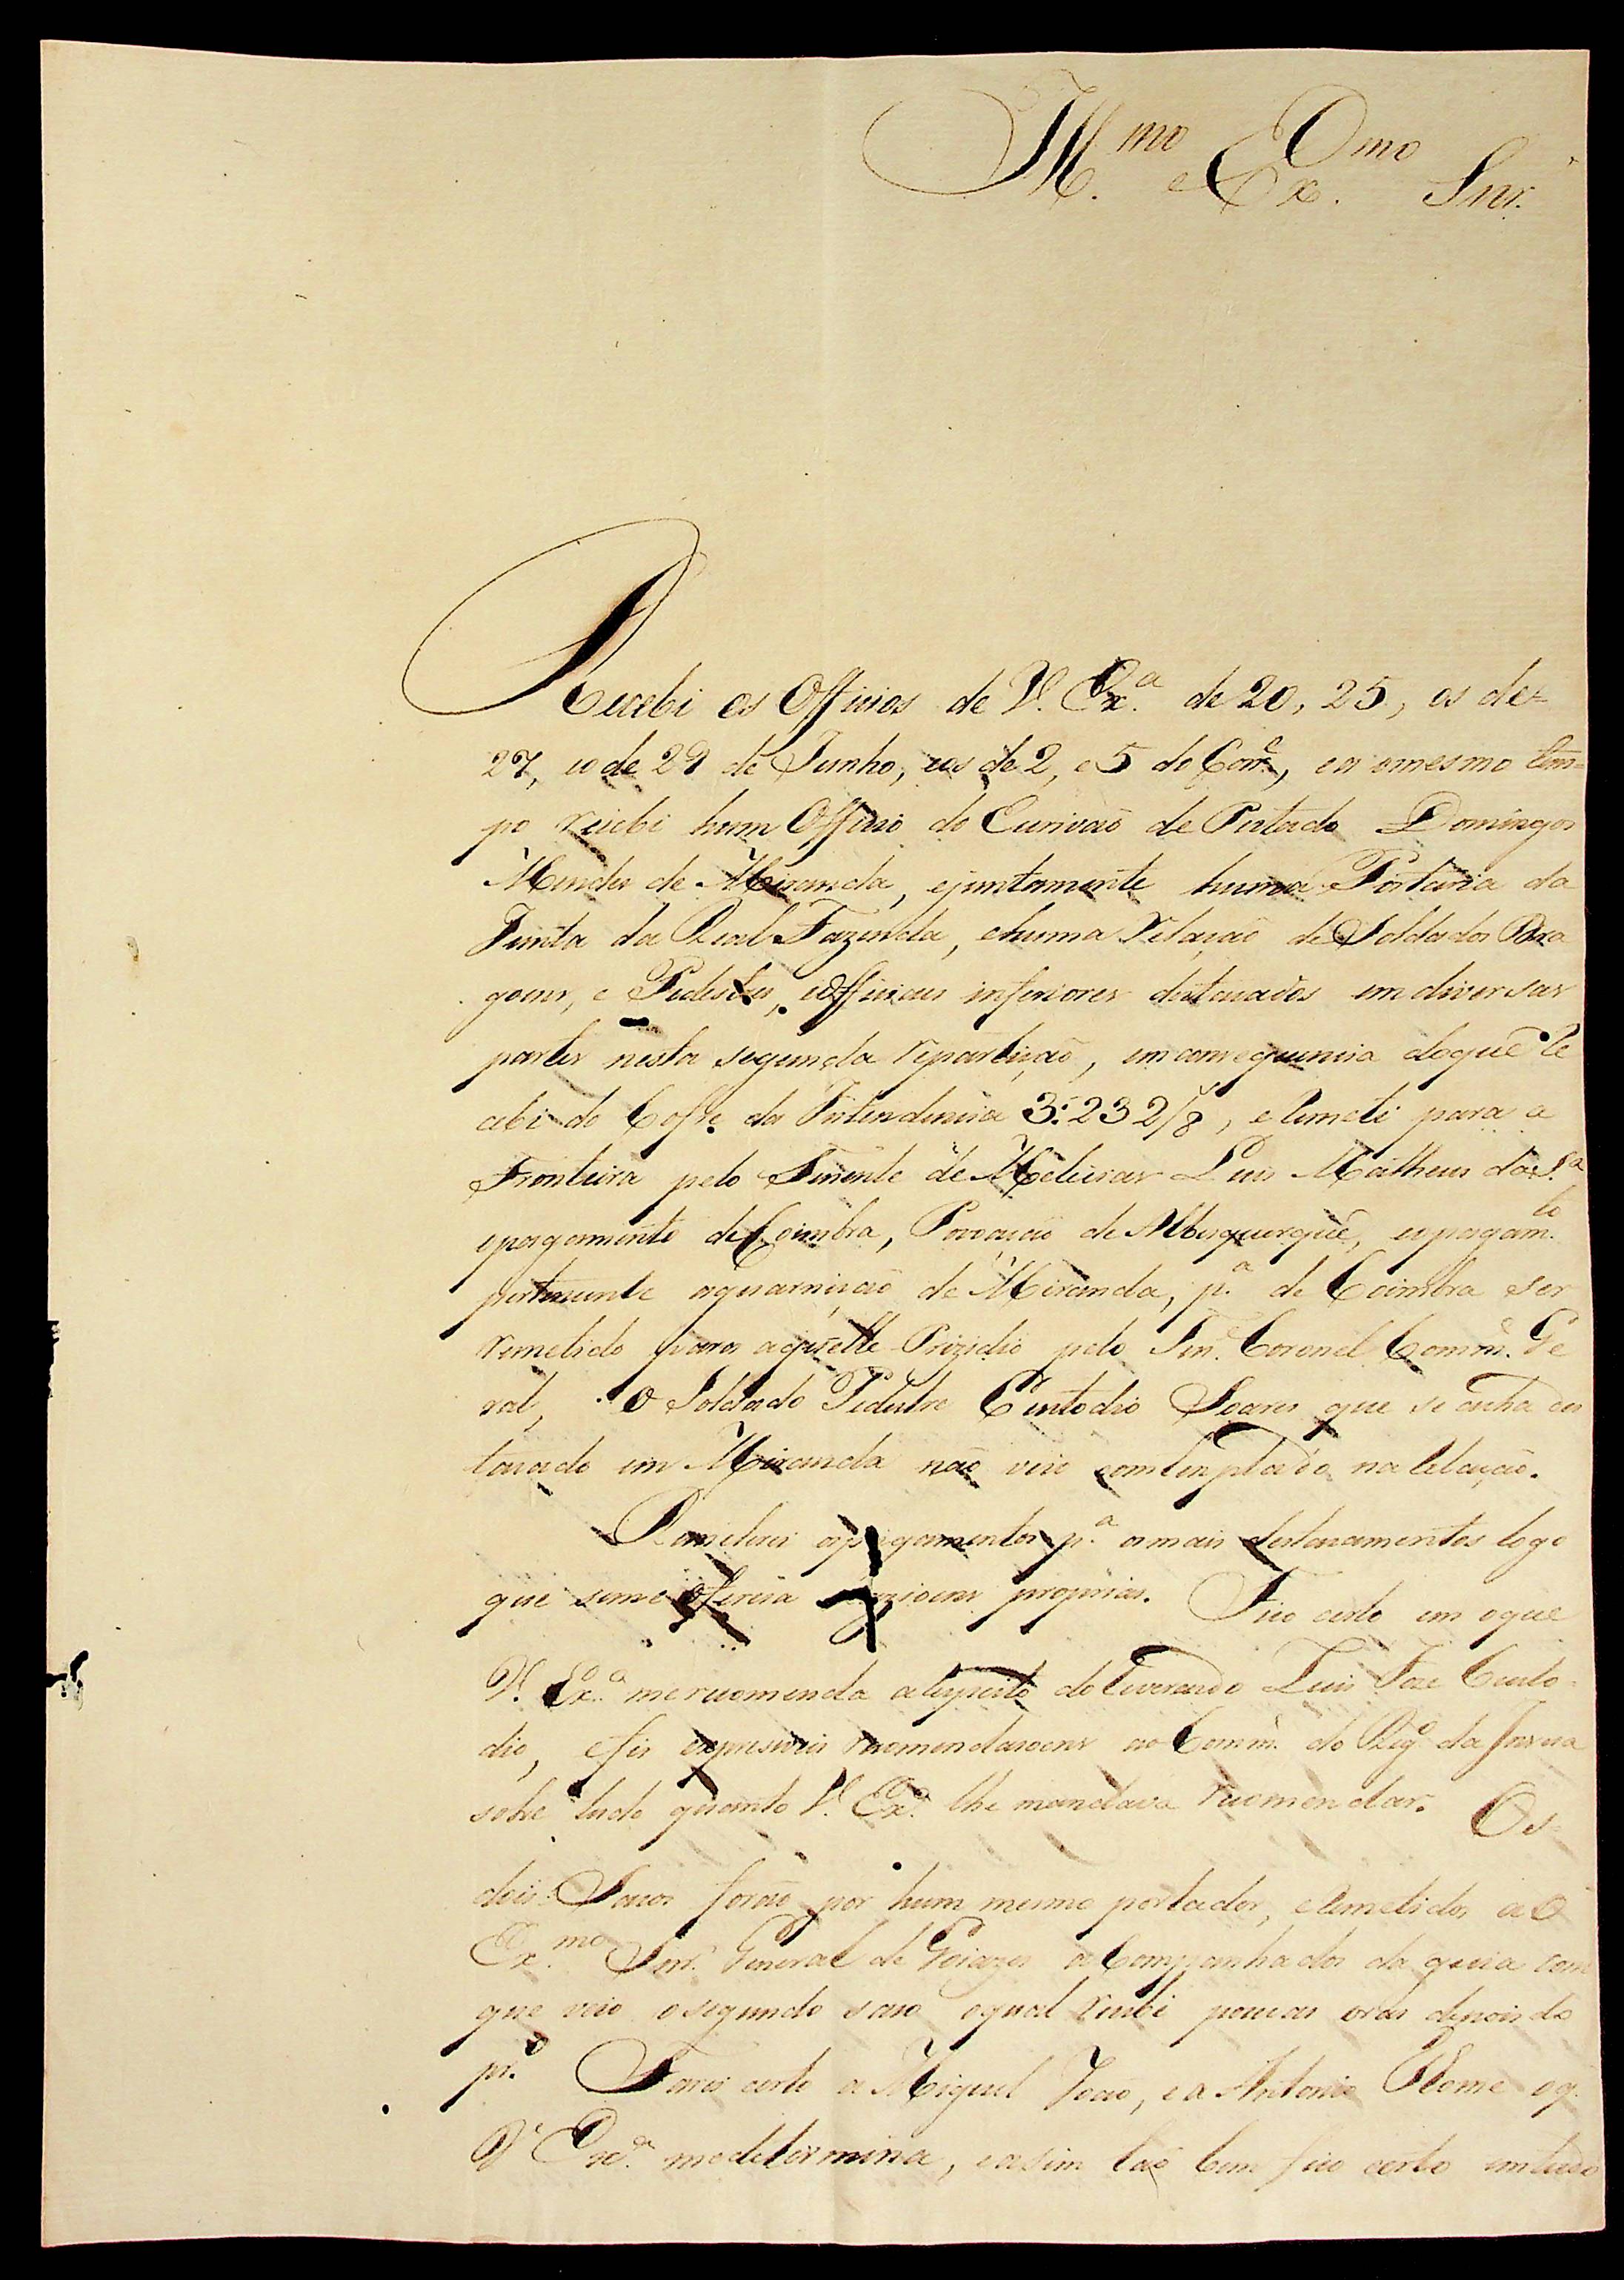 Ill.mo e Ex.mo Snr.
Recebi os Officios de V. Ex.a de 20, 25, os de=
27, eo de 29 de Junho, eos de 2, e 5 do Corr.e, e ao mesmo tem=
po recebi hum Officio do Escrivaõ de Cuiabá Domingos
Mendes de Miranda, ejuntamente huma Portaria da
Junta da Real Fazenda, ehuma relaçaõ de Soldados Dra
goens, e Pedestres, eOfficiaes inferiores destacados em diversas
partes nesta segunda repartiçaõ, em consequencia doque re
cebi do Cofre da Intendencia 3:232/8, e remeti para a
Fronteira pelo Tenente de Melicias Luis Matheus da S.a
opagamento de Coimbra, Povoaçaõ de Albuquerque, eopagam.to
pertencente aguarniçaõ de Miranda, p.a de Coimbra ser
remetido para aquelle Prizidio pelo Ten.e Coronel Comm.e Ge
ral, O Soldado Pedestre Custodio Soares que se acha des
tacado em Miranda naõ veio contemplado na relaçaõ.
Remeterei ospagamentos p.a osmais destacamentos logo
que seme ofereça proprias. Fico certo em oque
V. Ex.a merecomenda arespeito do Reverendo Luis Joze Custo=
dio, efis expressivas recomendacoens ao Comm.e do Reg.o da Insua
sobre tudo quanto V. Ex.a lhe mandava recomendar. Os=
dois Sacos foraõ por hum mesmo portador, eremetidos ao
Ex.mo Snr. General de Goiazes acompanhados da guia com
que veio osegundo saco oqual recebi poucas oras depois do
pr.o Farei certo a Miguel Joaõ, e a Antonio Nome oq.
V. Ex.a medetermina, easim taõ bem fico certo emtudo